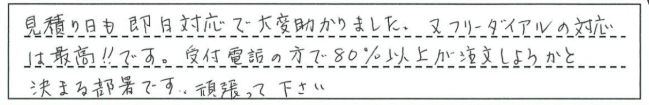 見積り日も即日対応で大変助かりました、又フリーダイアルの対応
は最高!!です。受付電話の方で80%以上が注文しようかと
決まる部署です、頑張って下さい